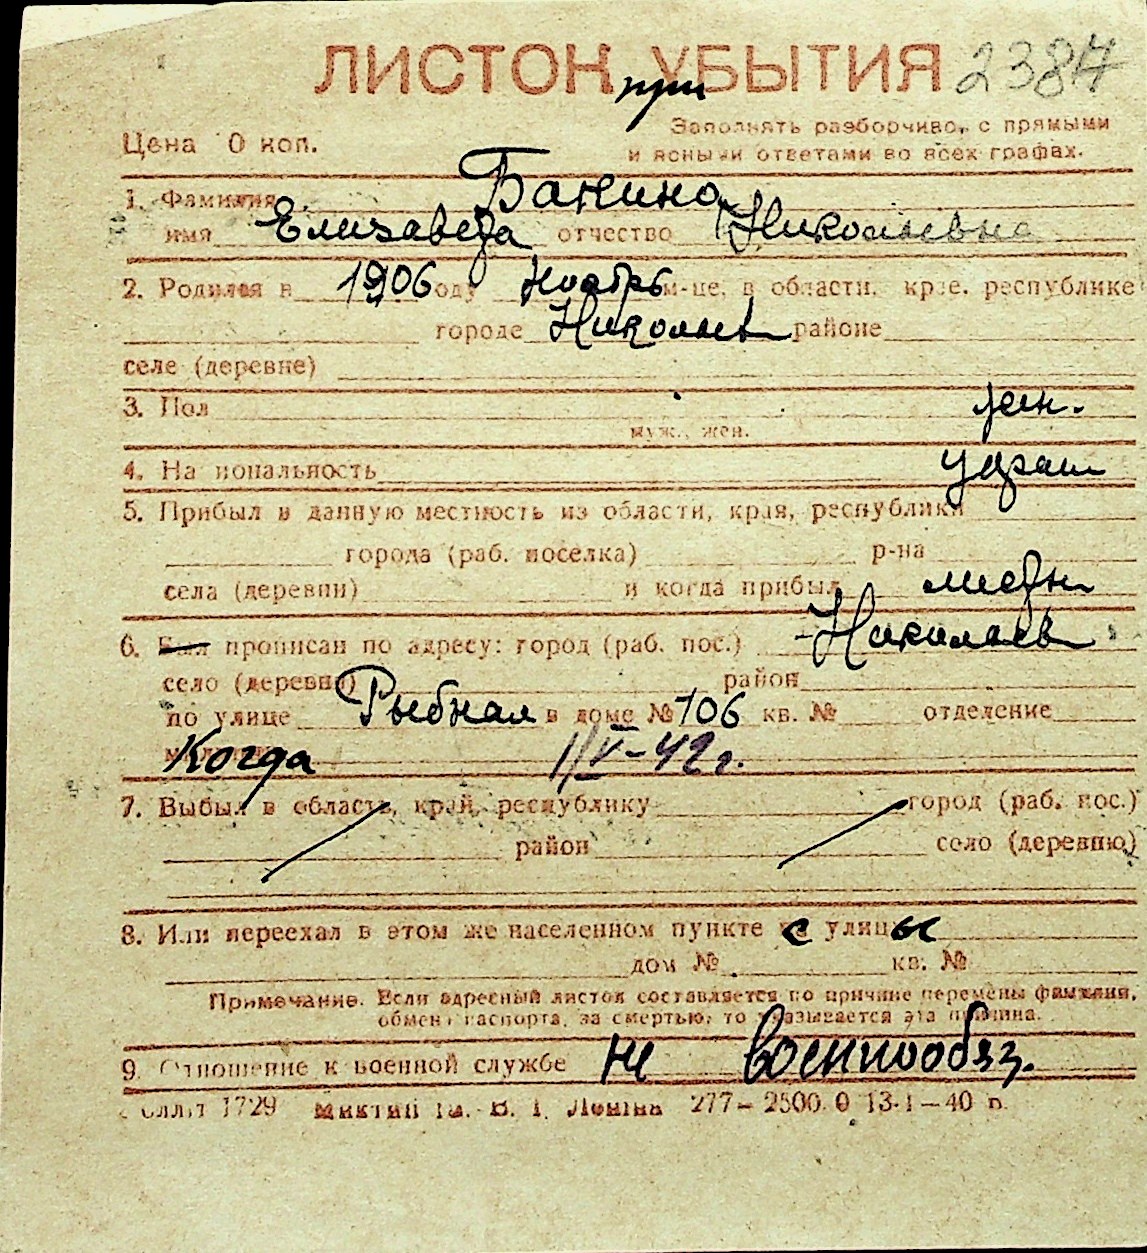 ЛИСТОК УБЫТИЯ 2384
при
Цена 0 коп.
Заполнять разборчиво, с прямыми
и ясными ответами во всех графах.
1. Фамилия Банина
имя Елизавета отчество Николаевна
2. Родился в 1906 году ноябрь м-це, в области, крае, республике
городе Николаев районе
селе (деревне)
3. Пол жен.
муж., жен.
4. Национальность украин
5. Прибыл в данную местность из области, края, республики
города (раб. поселка) р-на
села (деревни) и когда прибыл местн
6. Был прописан по адресу: город (раб. пос.) Николаев
село (деревня) район
по улице Рыбная в доме № 106 кв. № отделение
Когда 1/V-42 г.
7. Выбыл в область, край, республику город (раб. пос.)
район село (деревню)
8. Или переехал в этом же населенном пункте с улицы
дом № кв. №
Примечание. Если адресный листок составляется по причине перемены фамилии,
обмена паспорта, за смертью, то указывается эта причина.
9. Отношение к военной службе не военнообяз.
1729 277—2500.0 13-1—40 р.